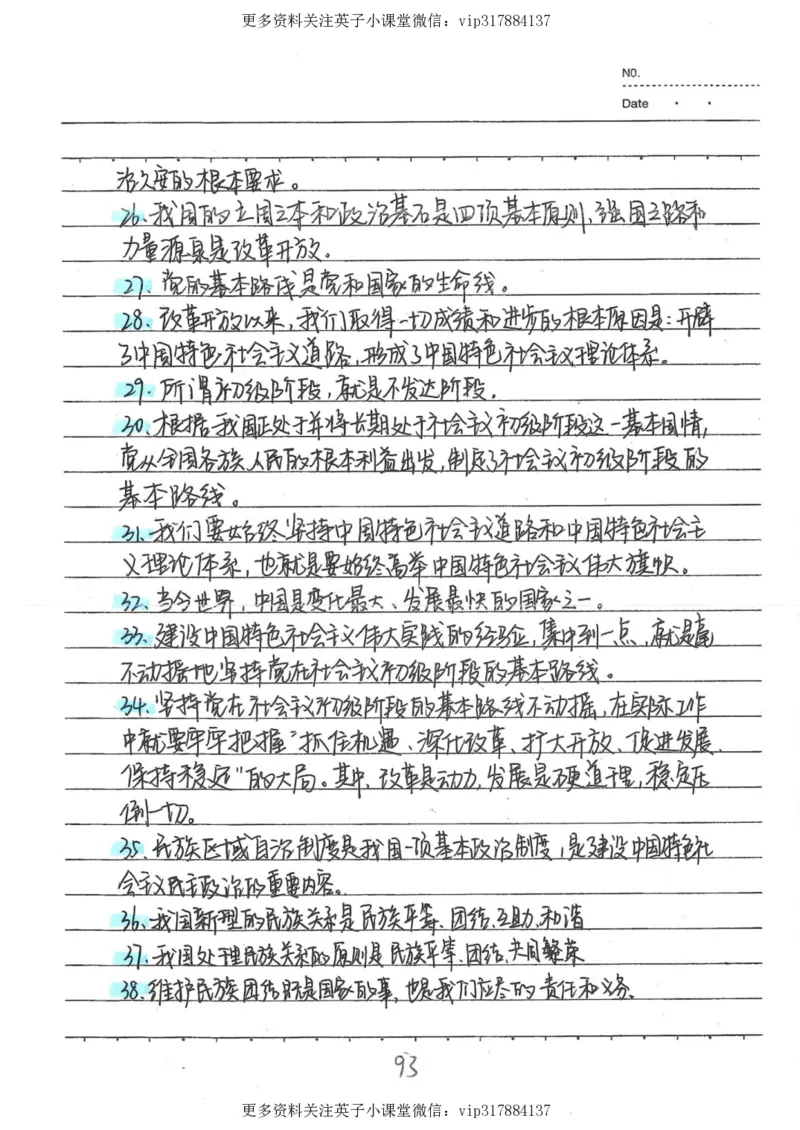 更多资料关注英子小课堂微信：vip317884137
NO.
Date
治久安的根本要求。
26、我国的立国之本和政治基石是四项基本原则，强国之路和
力量源泉是改革开放。
27、党的基本路线是党和国家的生命线。
28、改革开放以来，我们取得一切成绩和进步的根本原因是：开辟
了中国特色社会主义道路，形成了中国特色社会主义理论体系。
29、所谓初级阶段，就是不发达阶段。
30、根据我国正处于并将长期处于社会主义初级阶段这一基本国情，
党从全国各族人民的根本利益出发，制定了社会主义初级阶段的
基本路线。
31、我们要始终坚持中国特色社会主义道路和中国特色社会主
义理论体系，也就是要始终高举中国特色社会主义伟大旗帜。
32、当今世界，中国是变化最大、发展最快的国家之一。
33、建设中国特色社会主义伟大实践的经验，集中到一点，就是毫
不动摇地坚持党在社会主义初级阶段的基本路线。
34、坚持党在社会主义初级阶段的基本路线不动摇，在实际工作
中就要牢牢把握“抓住机遇、深化改革、扩大开放、促进发展、
保持稳定”的大局。其中，改革是动力，发展是硬道理，稳定压
倒一切。
35、民族区域自治制度是我国一项基本政治制度，是建设中国特色社
会主义民主政治的重要内容。
36、我国新型的民族关系是民族平等、团结、互助、和谐
37、我国处理民族关系的原则是民族平等、团结、共同繁荣
38、维护民族团结既是国家的事，也是我们应尽的责任和义务。
93
更多资料关注英子小课堂微信：vip317884137